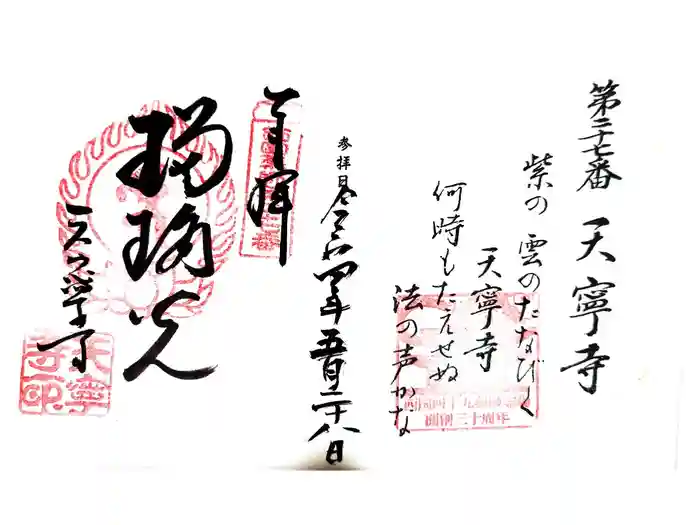 第二十七番 天寧寺
紫の雲のたなびく
天寧寺
何時もたえせぬ
法の声かな
開創三十周年
参拝日 令和四年五月二十八日
奉拝
瑠璃光
天寧寺
天寧寺印